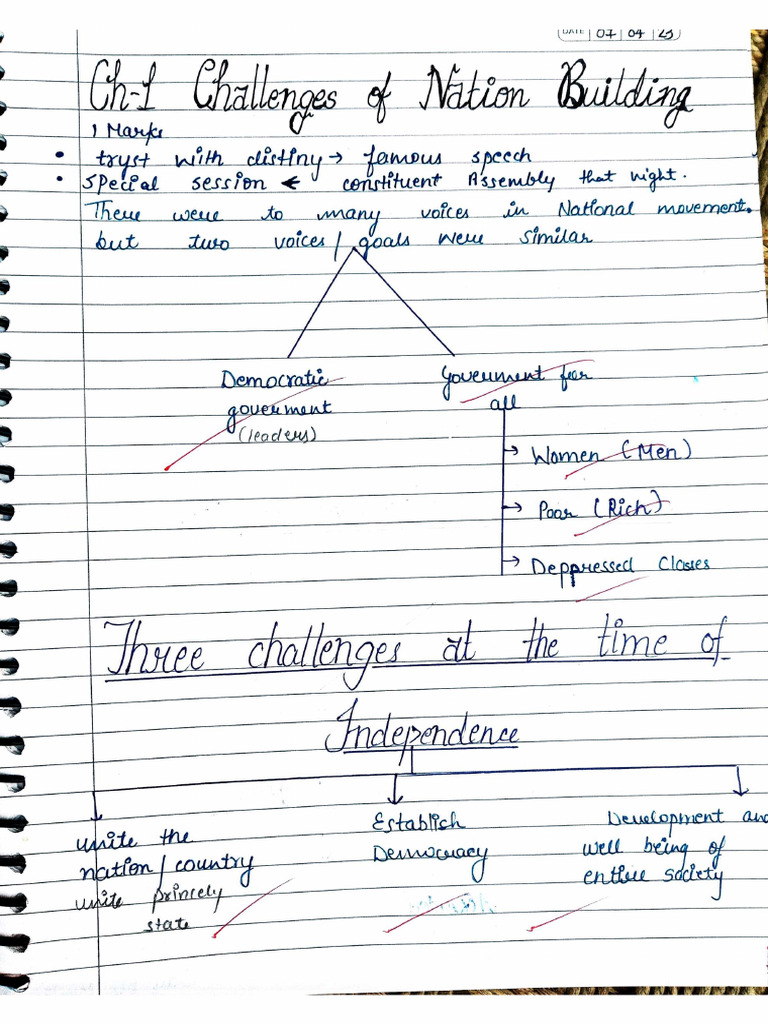 DATE 07 04 25
Ch-1 Challenges of Nation Building
1 Marks
• tryst with distiny → famous speech
• special session ← constituent Assembly that night.
There were to many voices in National movement.
but two voices/goals were similar
Democratic
goverment
(leaders)
Government for
all
→ Women (Men)
→ Poor (Rich)
→ Deppressed Classes
Three challenges at the time of
Independence
unite the
nation/country
unite princely
state
Establish
Democracy
Development and
well being of
entire society